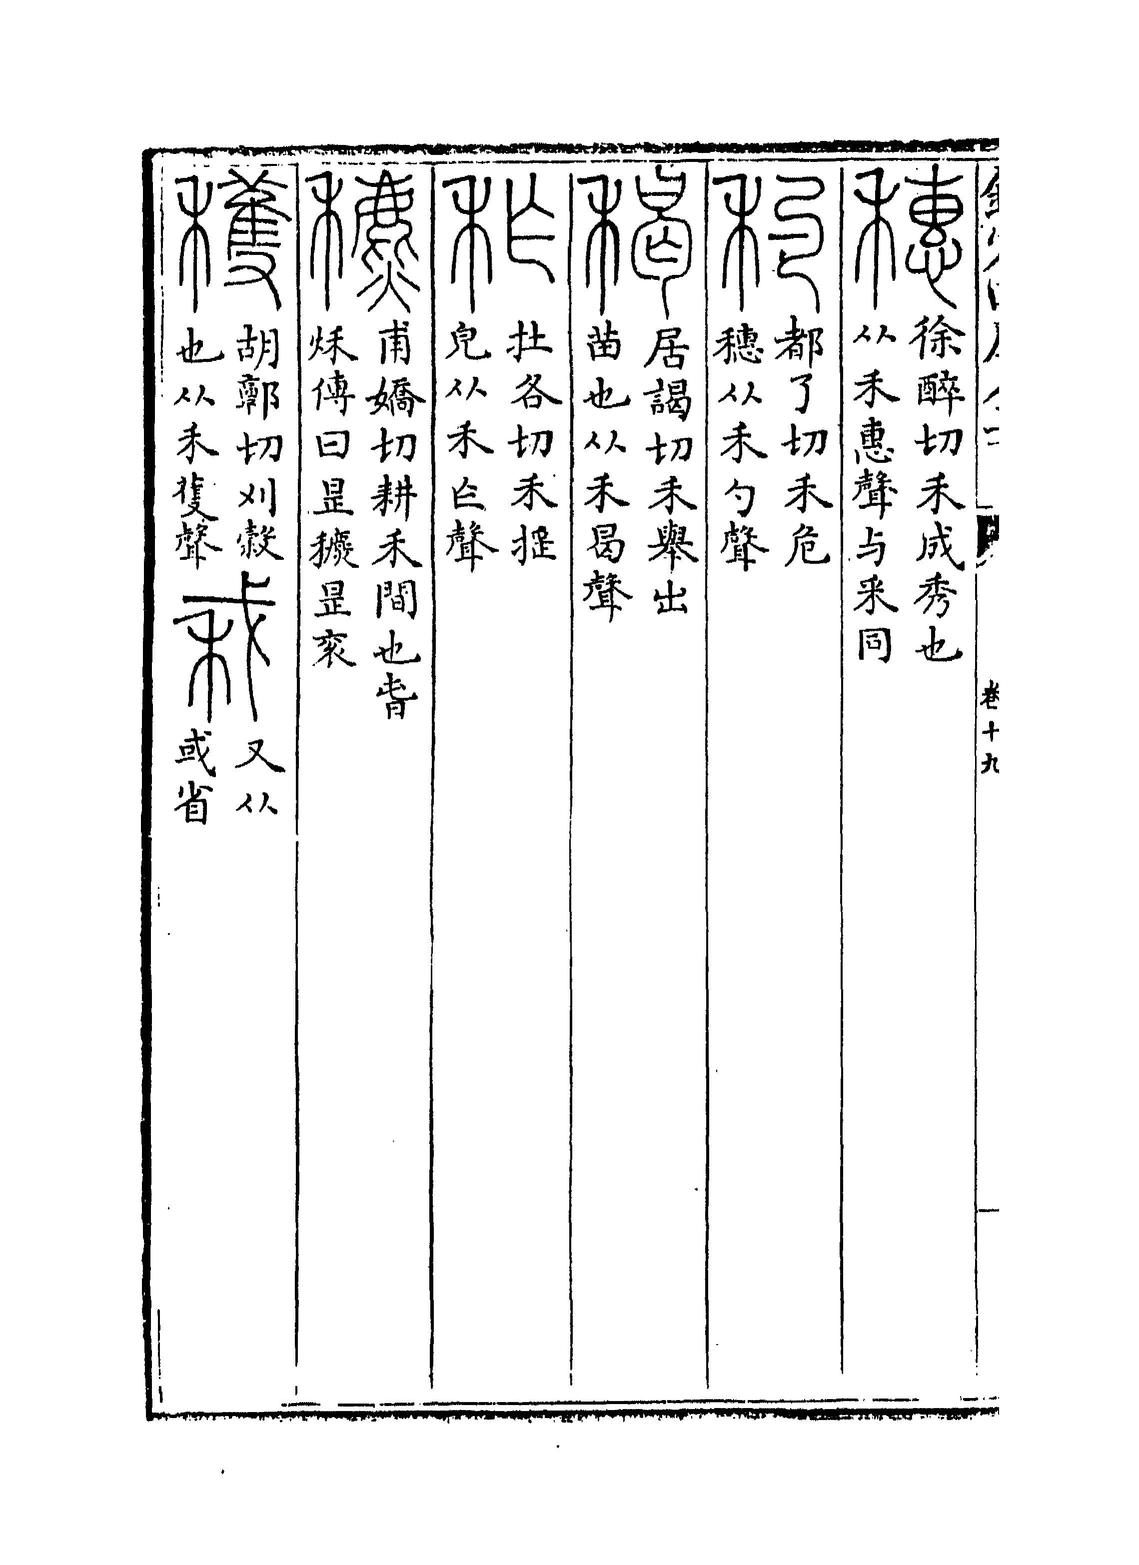 穗
徐醉切禾成秀也
从禾惠聲与采同
都了切禾危
穗从禾勺聲
居謁切禾舉出
苗也从禾曷聲
秨
壯各切禾搖
皃从禾乍聲
穮
甫嬌切耕禾間也
傳曰是穮是衮
穫
胡郭切刈穀
也从禾蒦聲
又从
或省
卷十九